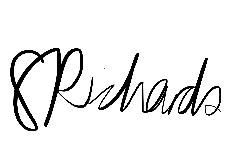 S Richards